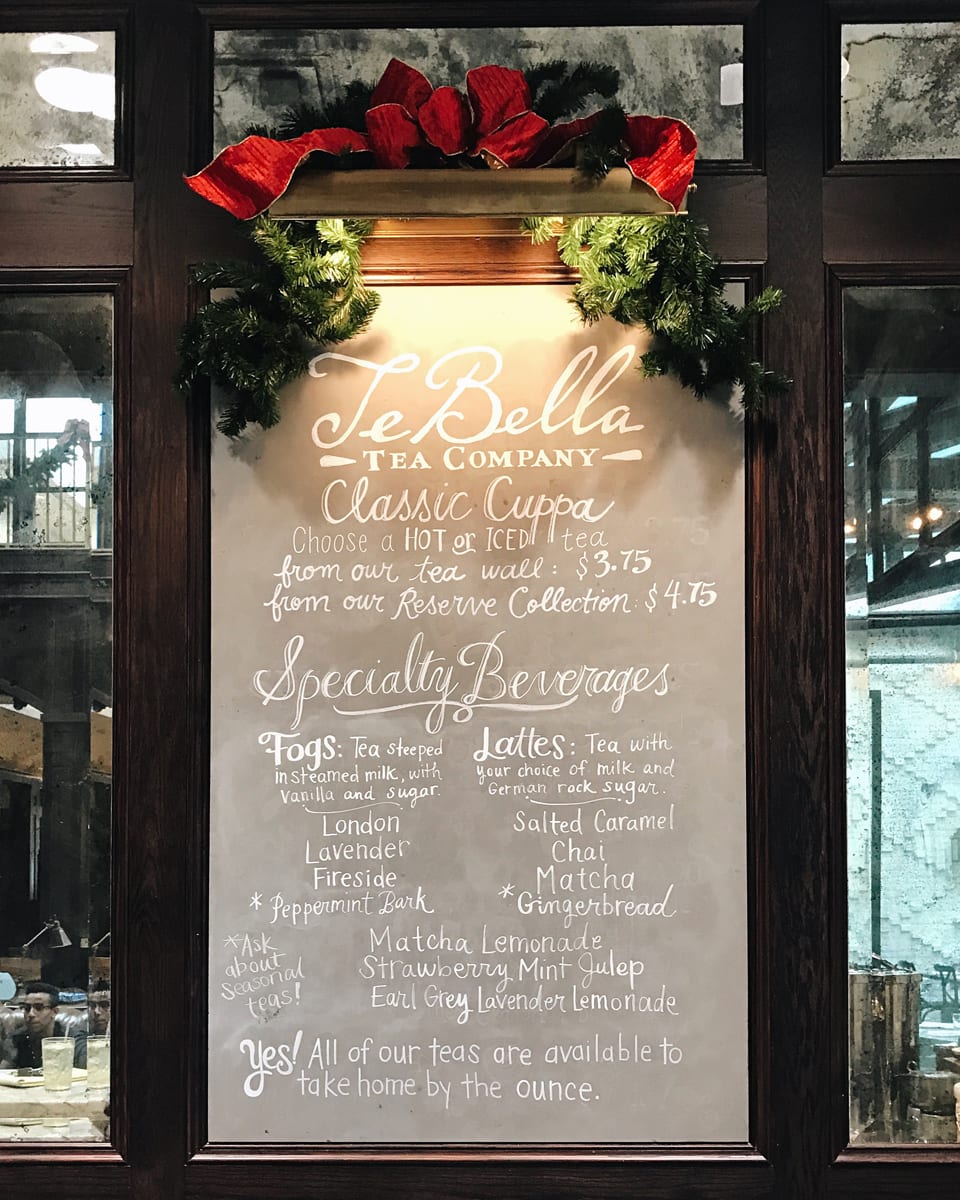 TeBella
TEA COMPANY
Classic Cuppa
Choose a HOT or ICED tea
from our tea wall: $3.75
from our Reserve Collection: $4.75
Specialty Beverages
Fogs: Tea steeped
in steamed milk, with
Vanilla and sugar.
London
Lavender
Fireside
* Peppermint Bark
Lattes: Tea with
your choice of milk and
German rock sugar.
Salted Caramel
Chai
Matcha
* Gingerbread
*Ask
about
seasonal
teas!
Matcha Lemonade
Strawberry Mint Julep
Earl Grey Lavender Lemonade
Yes! All of our teas are available to
take home by the ounce.